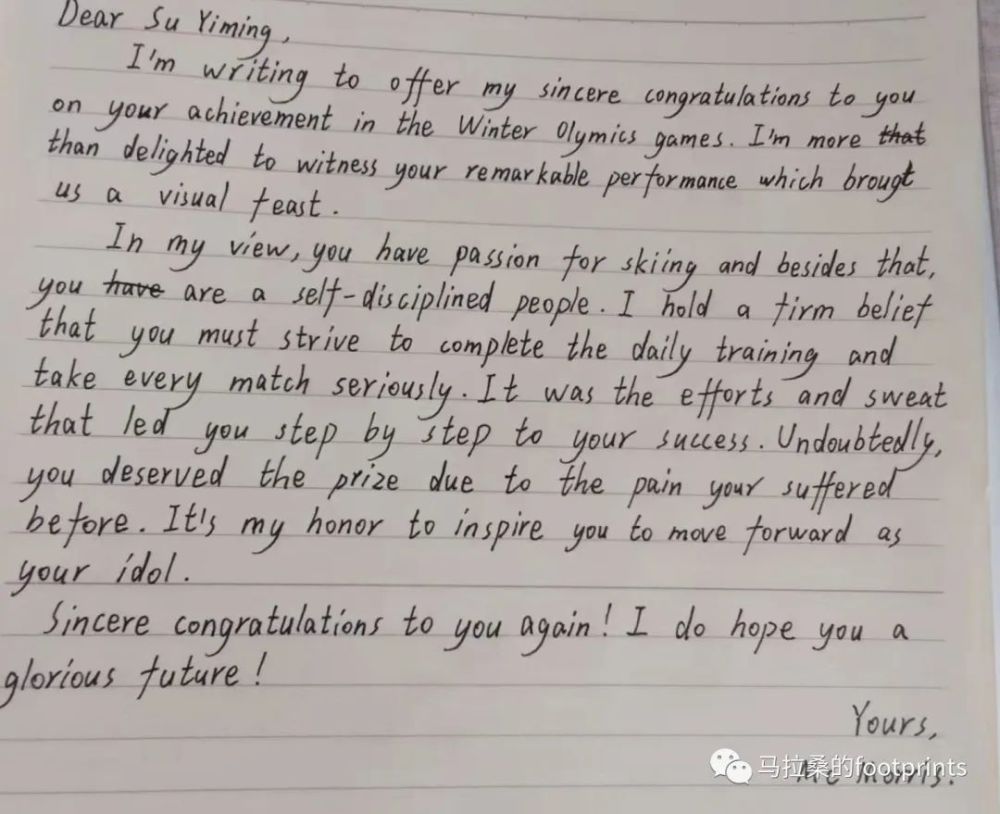 Dear Su Yiming,
I'm writing to offer my sincere congratulations to you
on your achievement in the Winter Olymics games. I'm more that
than delighted to witness your remarkable performance which brougt
us a visual feast.
In my view, you have passion for skiing and besides that,
you have are a self-disciplined people. I hold a firm belief
that you must strive to complete the daily training and
take every match seriously. It was the efforts and sweat
that led you step by step to your success. Undoubtedly,
you deserved the prize due to the pain your suffered
before. It's my honor to inspire you to move forward as
your idol.
Sincere congratulations to you again! I do hope you a
glorious future!
Yours,
Mc Morris.
马拉桑的footprints